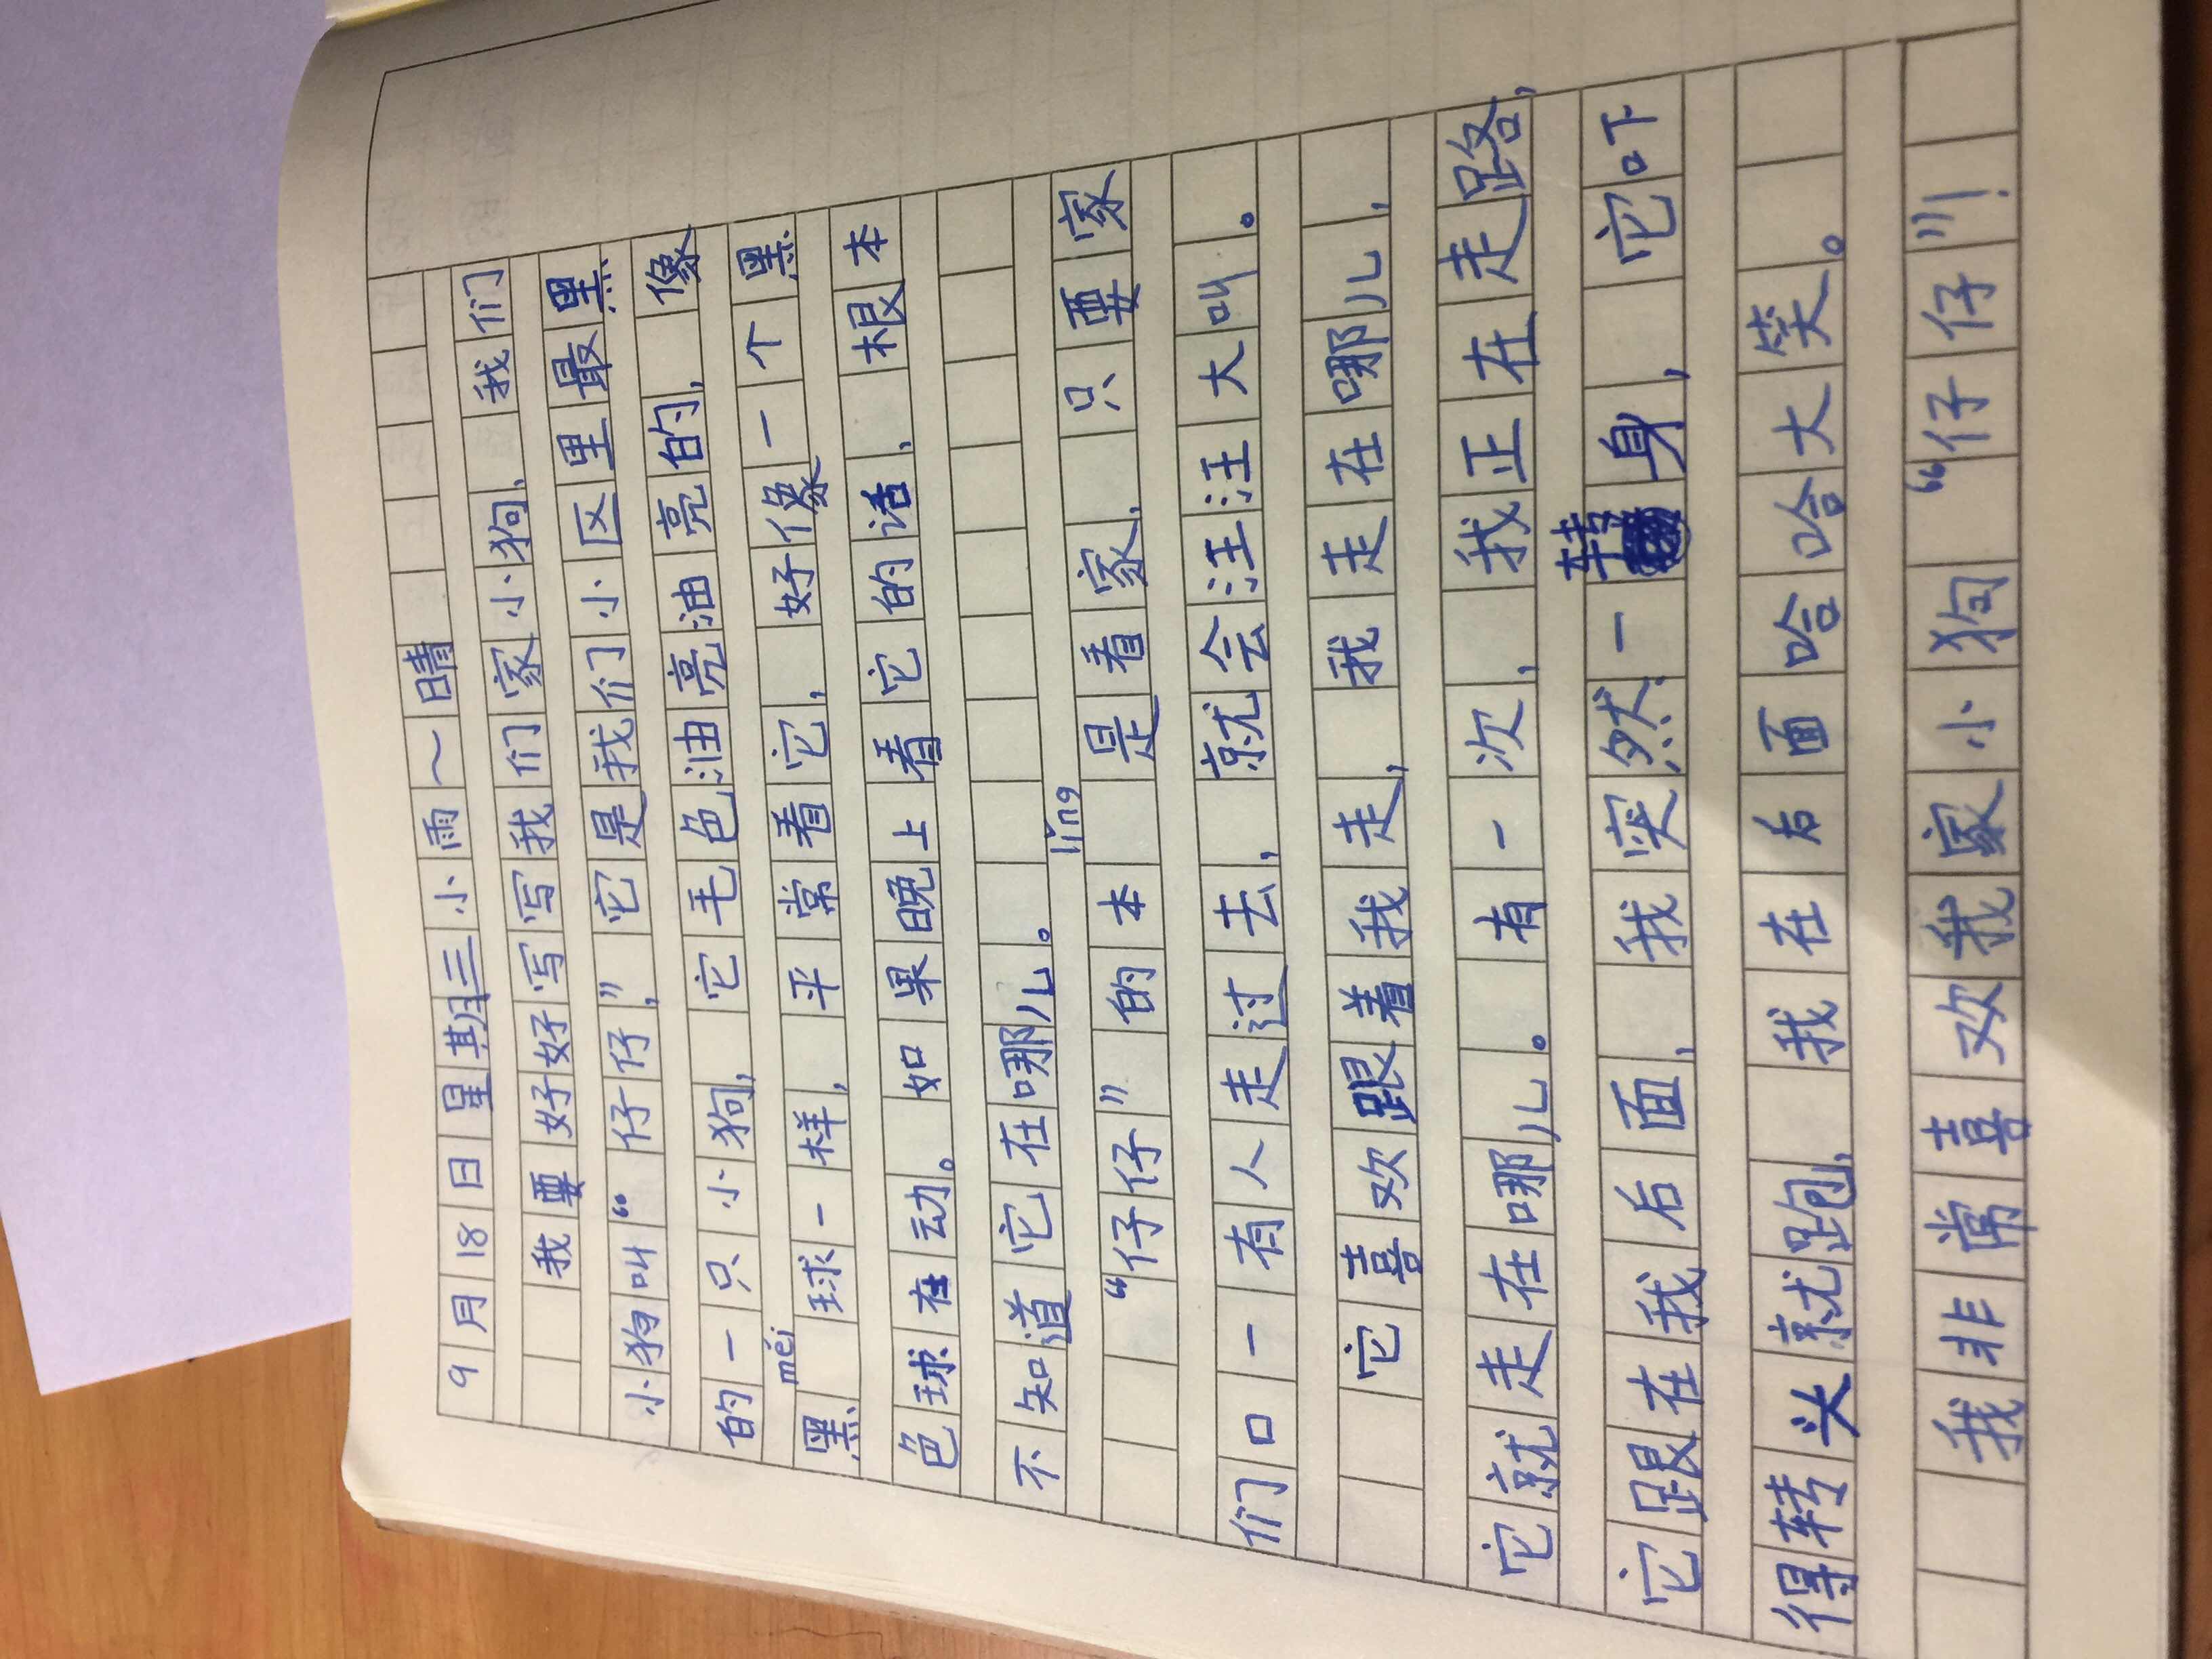 9月18日星期三小雨～晴
我要好好写写我们家小狗，我们
小狗叫“仔仔”，它是我们小区里最黑
的一只小狗，它毛色油亮油亮的，像
méi
黑球一样，平常看它，好像一个黑
色球在动。如果晚上看它的话，根本
不知道它在哪儿。
lǐng
“仔仔”的本是看家，只要家
们口一有人走过去，就会汪汪大叫。
它喜欢跟着我走，我走在哪儿，
它就走在哪儿。有一次，我正在走路，
它跟在我后面，我突然一转身，它吓
得转头就跑，我在后面哈哈大笑。
我非常喜欢我家小狗“仔仔”！